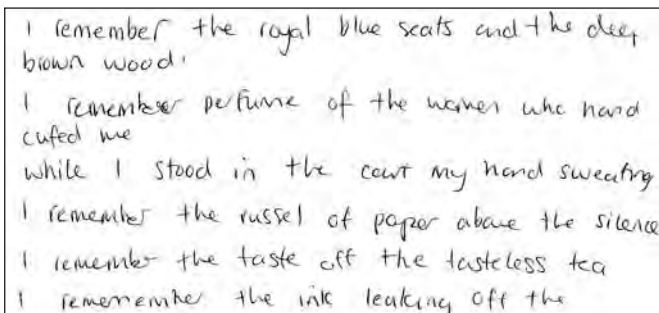 I remember the royal blue seats and the deep
brown wood.
I remember perfume of the women who hand
cufed me
while I stood in the court my hand sweating
I remember the russel of paper above the silence
I remember the taste off the tasteless tea
I rememember the ink leaking off the